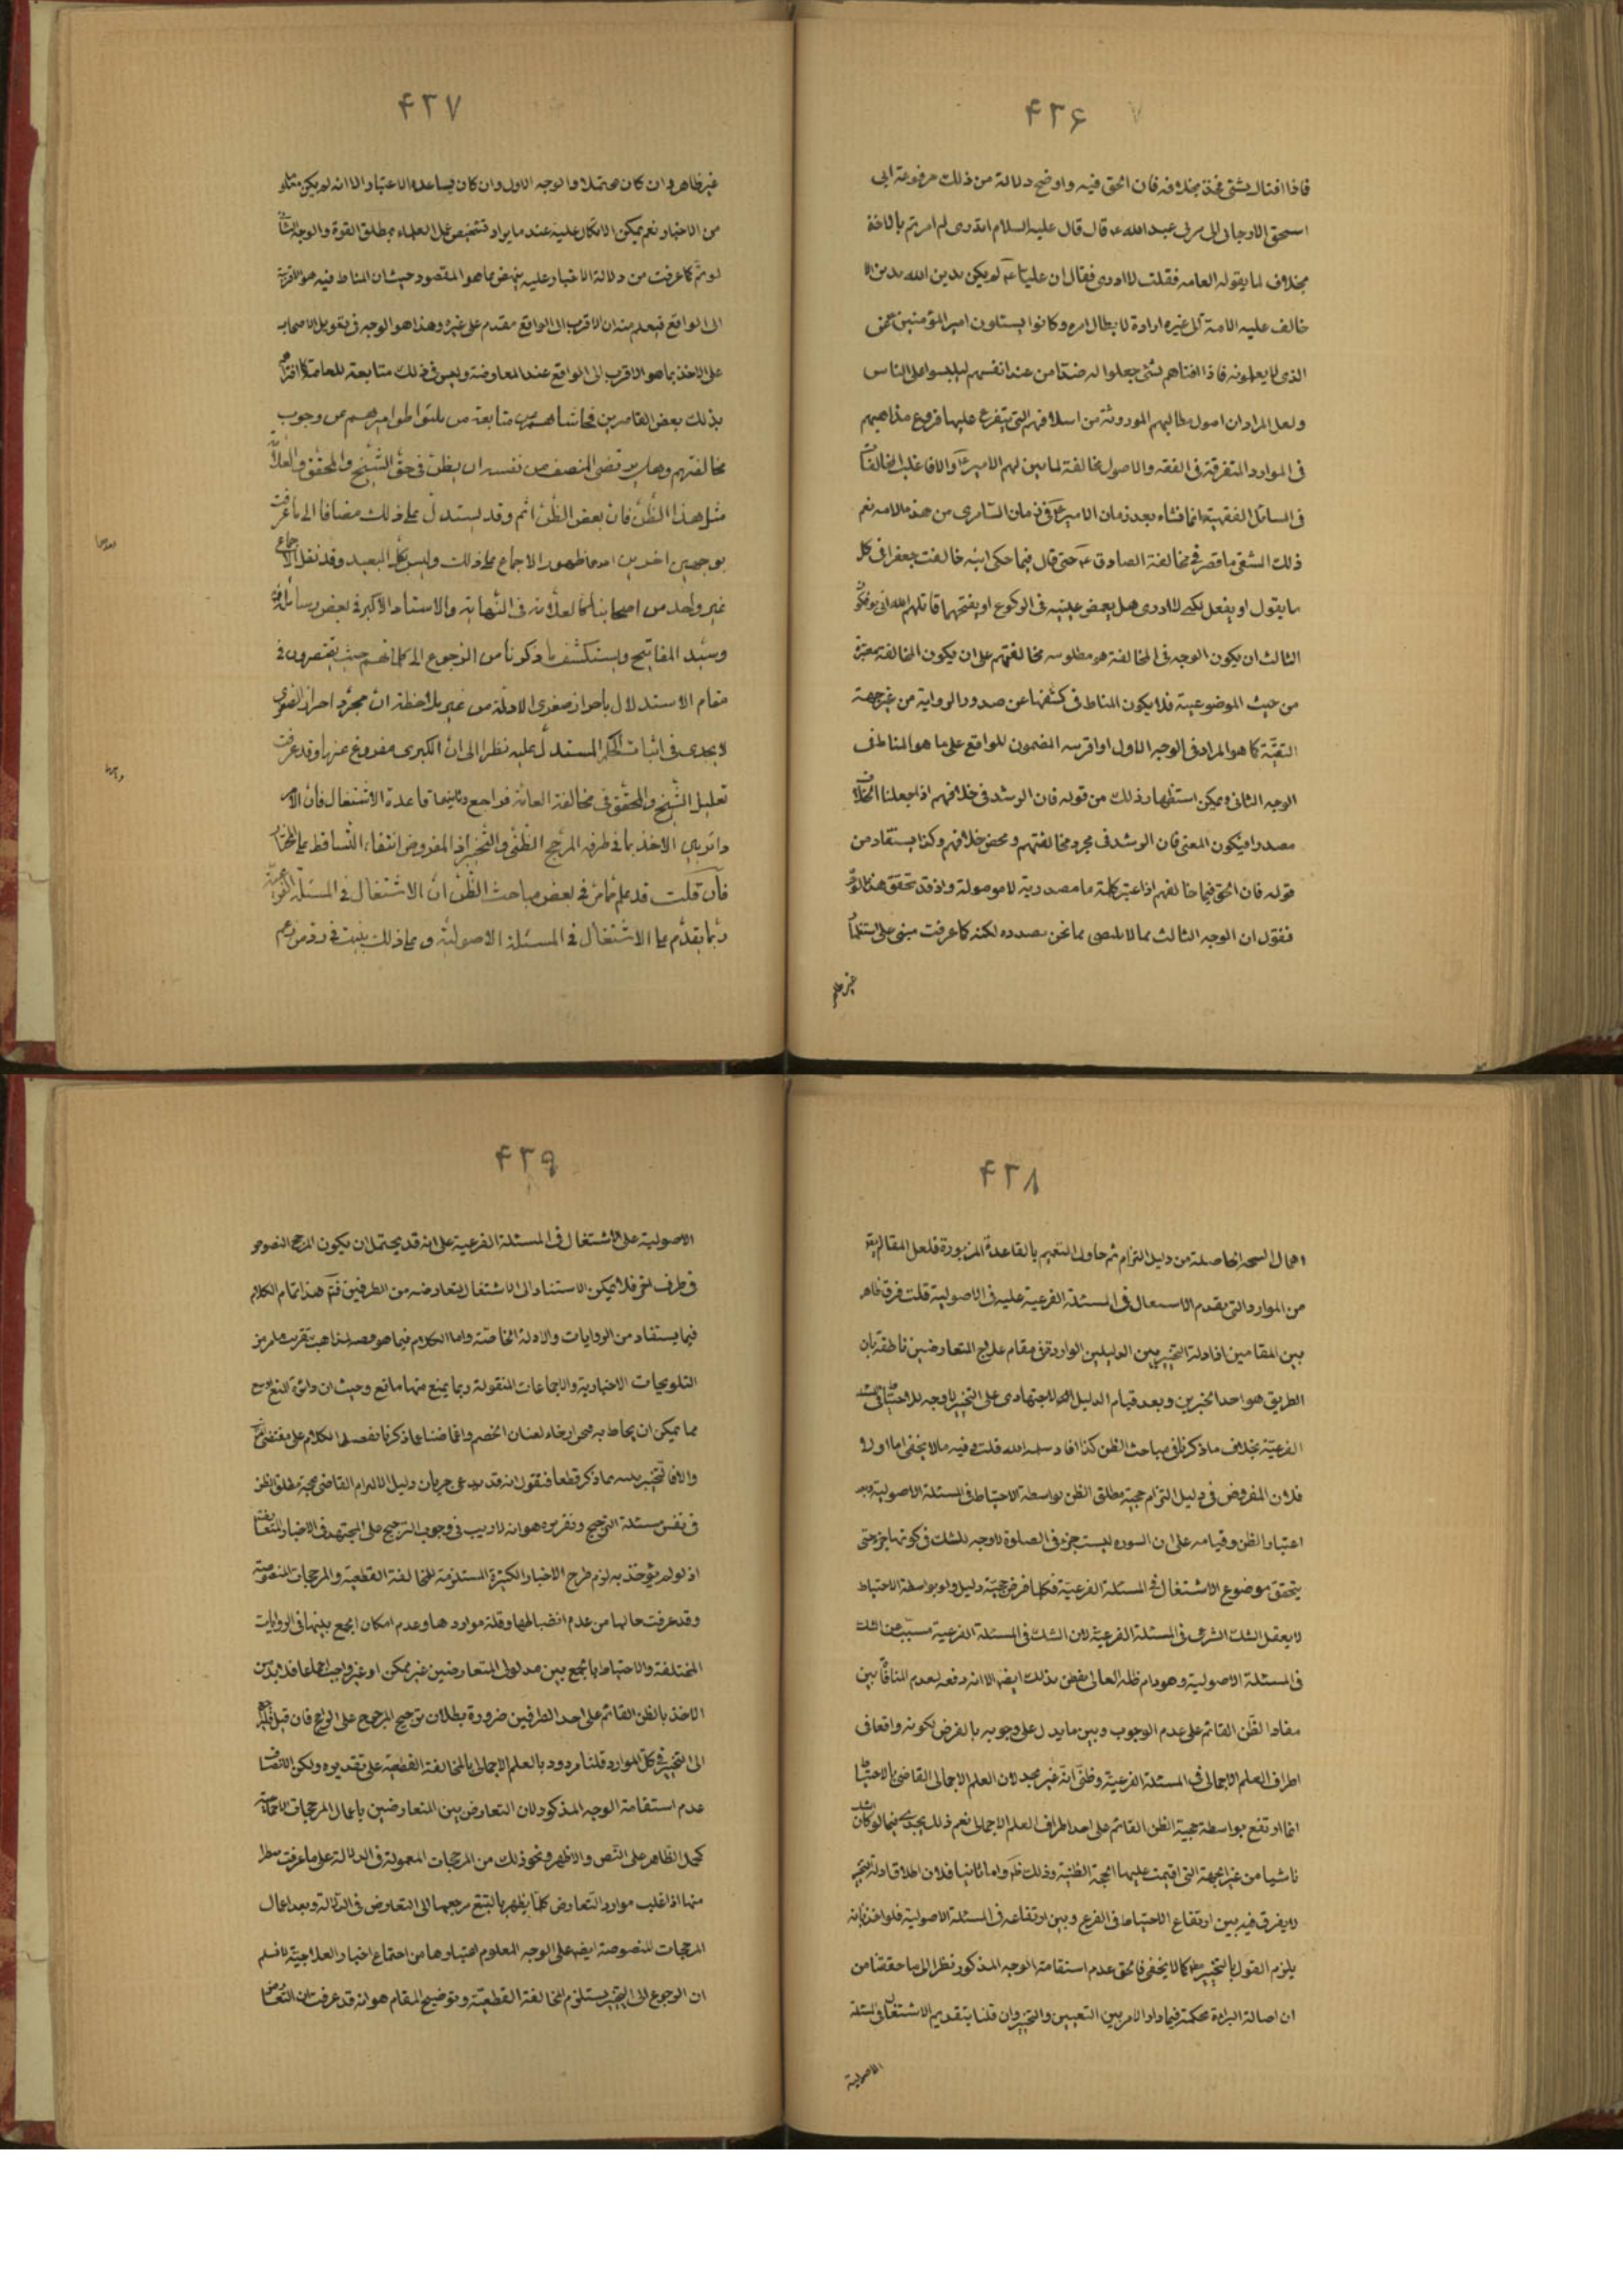 ۴۲۶
فاذا افتاك بشئ فخذ بخلافه فان الحق فيه واوضح دلالة من ذلك مرفوعة ابى
اسحق الارجانى الى عبد الله ع قال قال عليه السلام اتدرى لم امرتم بالاخذ
بخلاف ما يقوله العامه فقلت لا ادرى فقال ان عليا ع لم يكن يدين الله بدين الا
خالف عليه الامة الى غيره ارادة لابطال امره وكانوا يسئلون امير المؤمنين عن
الذى لا يعلمونه فاذا افتاهم بشئ جعلوا له ضدا من عند انفسهم ليلبسوا على الناس
ولعل المراد ان اصول مطالبهم الموروثة من اسلافهم التى يتفرع عليها فروع مذاهبهم
فى الموارد المتفرقة فى الفقه والاصول مخالفة لما بين لهم الامير ع والا فاغلب المخالفات
فى المسائل الفقهية انما نشاء بعد زمان الامير ع فى زمان السامرى من هذه الامه نعم
ذلك الشقى ما قصر فى مخالفة الصادق ع حتى قال فيما حكى انه خالفت جعفرا فى كل
ما يقول او يفعل لكنى لا ادرى هل يغمض عينيه فى الركوع او يفتحهما قاتلهم الله انى يؤفكون
الثالث ان يكون الوجه فى المخالفة هو مطلوبيه مخالفتهم على ان يكون المخالفة معتبرة
من حيث الموضوعية فلا يكون المناط فى كشفها عن صدور الرواية من غير جهة
التقيّة كما هو المراد فى الوجه الاول او اقربيه المضمون للواقع على ما هو المناط فى
الوجه الثانى ويمكن استظهار ذلك من قوله فان الرشد فى خلافهم اذا جعلنا الخلاف
مصدرا فيكون المعنى فان الرشد فى مجرد مخالفتهم ومحض خلافهم وكذا يستفاد من
قوله فان الحق فيما خالفهم اذا اعتبر كلمة ما مصدرية لا موصولة واذ قد تحقق هذه الوجوه
فنقول ان الوجه الثالث مما لا مصير بما نحن بصدده لكنه كما عرفت مبنى على استظهار
غير ظاهر
۴۲۷
غير ظاهر وان كان محتملا والوجه الاول وان كان يساعده الاعتبار الا انه لم يكن مدلولا
من الاخبار نعم يمكن الاتكال عليه عند ما يراد تشخيص عمل العلماء بمطلق القوة والوجه الثانى
لو تم كما عرفت من دلالة الاخبار عليه ينهض بما هو المقصود حيث ان المناط فيه هو الاقربية
الى الواقع فيعلم منه ان الاقرب الى الواقع مقدم على غيره وهذا هو الوجه فى تعويل الاصحاب
على الاخذ بما هو الاقرب الى الواقع عند المعارضة وليس فى ذلك متابعة للعامة كما افترى
بذلك بعض القاصرين فحاشاهم من متابعة من تواطوا امرهم من وجوب
مخالفتهم وهل يرتضى المنصف من نفسه ان يظن فى حق الشيخ والمحقق والعلامة
مثل هذا الظن فان بعض الظن اثم وقد يستدل على ذلك مضافا الى ما عرفت
بوجهين اخرين احدهما ظهور الاجماع على ذلك وليس بكل البعيد وقد نقل الاجماع
غير واحد من اصحابنا كالعلامة فى النهاية والاستاد الاكبر فى بعض رسائله
وسيد المفاتيح ويستكشف ما ذكرنا من الرجوع الى كلماتهم حيث يقتصرون فى
مقام الاستدلال باحراز صغرى الادلة من غير ملاحظة ان مجرد احراز الصغرى
لا يجدى فى اثبات الحكم المستدل عليه نظرا الى ان الكبرى مفروغ عنها وقد عرفت
تعليل الشيخ والمحقق فى مخالفة العامة فراجع وثانيهما قاعدة الاشتغال فان الامر
دائر بين الاخذ بما فى طرفه المرجح الظنى والتخيير اذ المفروض انتفاء التساقط على المختار
فان قلت قد علم مما مر فى بعض مباحث الظن ان الاشتغال فى المسئلة الفرعية
ربما يقدم على الاشتغال فى المسئلة الاصولية وعلى ذلك بنيت فى رد من زعم
احدهما
وثانيهما
۴۲۸
اهمال النتيجة الحاصلة من دليل التزام ثم حاول التعميم بالقاعدة المزبورة فلعل المقام
من الموارد التى يقدم الاشتغال فى المسئلة الفرعية عليه فى الاصولية قلت فرق ظاهر
بين المقامين اذ ادلة التخيير بين الدليلين الواردة فى مقام علاج المتعارضين ناطقة بان
الطريق هو احد الخبرين وبعد قيام الدليل الاجتهادى على التخيير لا وجه للاحتياط فى المسئلة
الفرعية بخلاف ما ذكرنا فى مباحث الظن كذا افاد سلمه الله قلت وفيه ما لا يخفى اما اولا
فلان المفروض فى دليل التزام حجية مطلق الظن بواسطة الاحتياط فى المسئلة الاصولية وبعد
اعتبار الظن وقيامه على ان السوره ليست جزء فى الصلوة لا وجه للشك فى كونها جزء حتى
يتحقق موضوع الاشتغال فى المسئلة الفرعية فكلما فرض حجية دليل ولو بواسطة الاحتياط
لا يعقل الشك فى المسئلة الفرعية لان الشك فى المسئلة الفرعية مسبب عن الشك
فى المسئلة الاصولية وهو دام ظله العالى تفطن بذلك ايضا الا انه دفعه بعدم التنافى بين
مفاد الظن القائم على عدم الوجوب وبين ما يدل على وجوبه بالفرض لكونه واقعا فى
اطراف العلم الاجمالى فى المسئلة الفرعية وظنى انه غير مجد لان العلم الاجمالى القاضى بالاحتياط
انما ارتفع بواسطة حجية الظن القائم على احد اطراف العلم الاجمالى نعم ذلك يجدى فيما لو كان الشك
ناشيا من غير الجهة التى اقيمت عليها الحجة الظنية وذلك ظ واما ثانيا فلان اطلاق ادلة التخيير
لا يفرق فيه بين ارتفاع الاحتياط فى الفرع وبين ارتفاعه فى المسئلة الاصولية فلو اخذنا به
يلزم القول بالتخيير مط كما لا يخفى فالحق عدم استقامة الوجه المذكور نظرا الى ما حققنا من
ان اصالة البراءة محكمة فيما دار الامر بين التعيين والتخيير وان قلنا بتقديم الاشتغال فى المسئلة
الاصولية
۴۲۹
الاصولية على الاشتغال فى المسئلة الفرعية على انه قد يحتمل ان يكون المرجح المنصوص
فى طرف اخر فلا يمكن الاستناد الى الاشتغال لتعارضه من الطرفين فتم هذا تمام الكلام
فيما يستفاد من الروايات والادلة الخاصّة واما الكلام فيما هو
التلويحات الاخبارية والاجماعات المنقولة ربما يمنع منها مانع وحيث ان دائرة المنع اوسع
مما يمكن ان يحاط به فنحن ارخاء لعنان الخصم واغماضنا عما ذكرنا نفصل الكلام على مقتضى
والا فالخبير يسه بما ذكر قطعا فنقول انه قد يدعى جريان دليل الانسداد القاضى بحجية مطلق الظن
فى نفس مسئلة الترجيح وتقريره هو انه لا ريب فى وجوب الترجيح على المجتهد فى الاخبار المتعارضة
اذ لو لم يؤخذ به لزم طرح الاخبار الكثيرة المستلزمة للمخالفة القطعية والمرجحات المنصوصة
وقد عرفت حالها من عدم انضباطها وقلة مواردها وعدم امكان الجمع بينها فى الروايات
المختلفة والاحتياط بالجمع بين مدلولى المتعارضين غير ممكن او غير واجب اجماعا فلا بد من
الاخذ بالظن القائم على احد الطرفين ضرورة بطلان ترجيح المرجوح على الراجح فان قيل نرجع
الى التخيير فى كل الموارد قلنا مردود بالعلم الاجمالى بالمخالفة القطعية على تقديره ولكن الانصاف
عدم استقامة الوجه المذكور لان التعارض بين المتعارضين باعمال المرجحات
كحمل الظاهر على النص والاظهر ونحو ذلك من المرجحات المعمولة فى الدلالة على ما عرفت
منها اذ اغلب موارد التعارض كلما يظهر بالتتبع مرجعها الى التعارض فى الدلالة وبعد اعمال
المرجحات المنصوصة ايضا على الوجه المعلوم اعتبارها من اجتماع اخبار العلاجية لا نسلم
ان الرجوع الى التخيير يستلزم المخالفة القطعية وتوضيح المقام هو انه قد عرفت ان التعارض